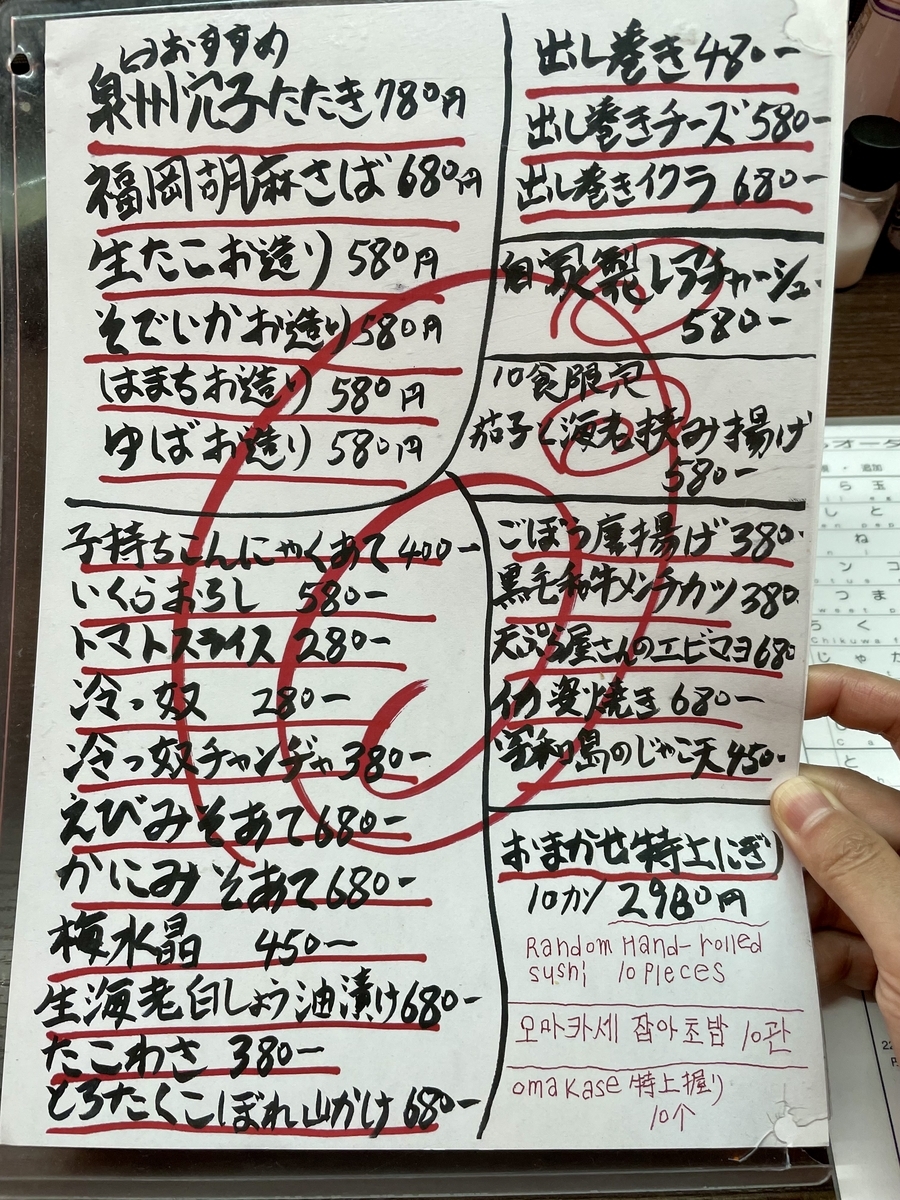 のおすすめ
泉州穴子たたき780円
福岡胡麻さば 680円
生たこお造り 580円
そでいかお造り580円
はまちお造り 580円
ゆばお造り 580円
子持ちこんにゃくあて 400-
いくらおろし 580-
トマトスライス 280-
冷っ奴 280-
冷っ奴チャンヂャ380-
えびみそあて680-
かにみそあて680-
梅水晶 450-
生海老白しょう油漬け680-
たこわさ 380-
とろたくこぼれ山かけ 680-
出し巻き480-
出し巻きチーズ580-
出し巻きイクラ 680-
自家製レアチャーシュー
580-
10食限定
茄子と海老挟み揚げ
580-
ごぼう唐揚げ 380-
黒毛和牛メンチカツ 380-
天ぷら屋さんのエビマヨ680
イカ姿焼き 680-
宇和島のじゃこ天450-
おまかせ特上にぎり
10カン 2980円
Random Hand-rolled
sushi 10 pieces
오마카세 잡아초밥 10관
omakase 特上握り
10个